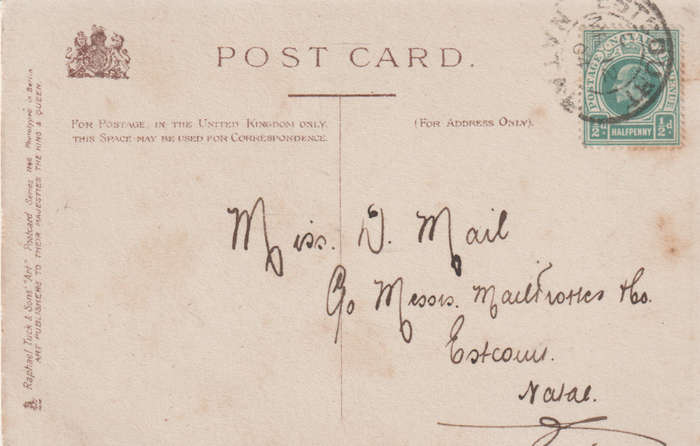 POST CARD.
FOR POSTAGE, IN THE UNITED KINGDOM ONLY,
THIS SPACE MAY BE USED FOR CORRESPONDENCE.
(FOR ADDRESS ONLY).
POSTAGE
REVENUE
½d HALFPENNY ½d
NATAL
Miss. D. Mail
C/o Messrs.
Estcourt.
Natal.
Raphael Tuck & Sons' "Art" Postcard Series Phototyped in Berlin
ART PUBLISHERS TO THEIR MAJESTIES THE KING & QUEEN.